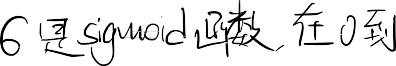 6是sigmoid函数,在0到